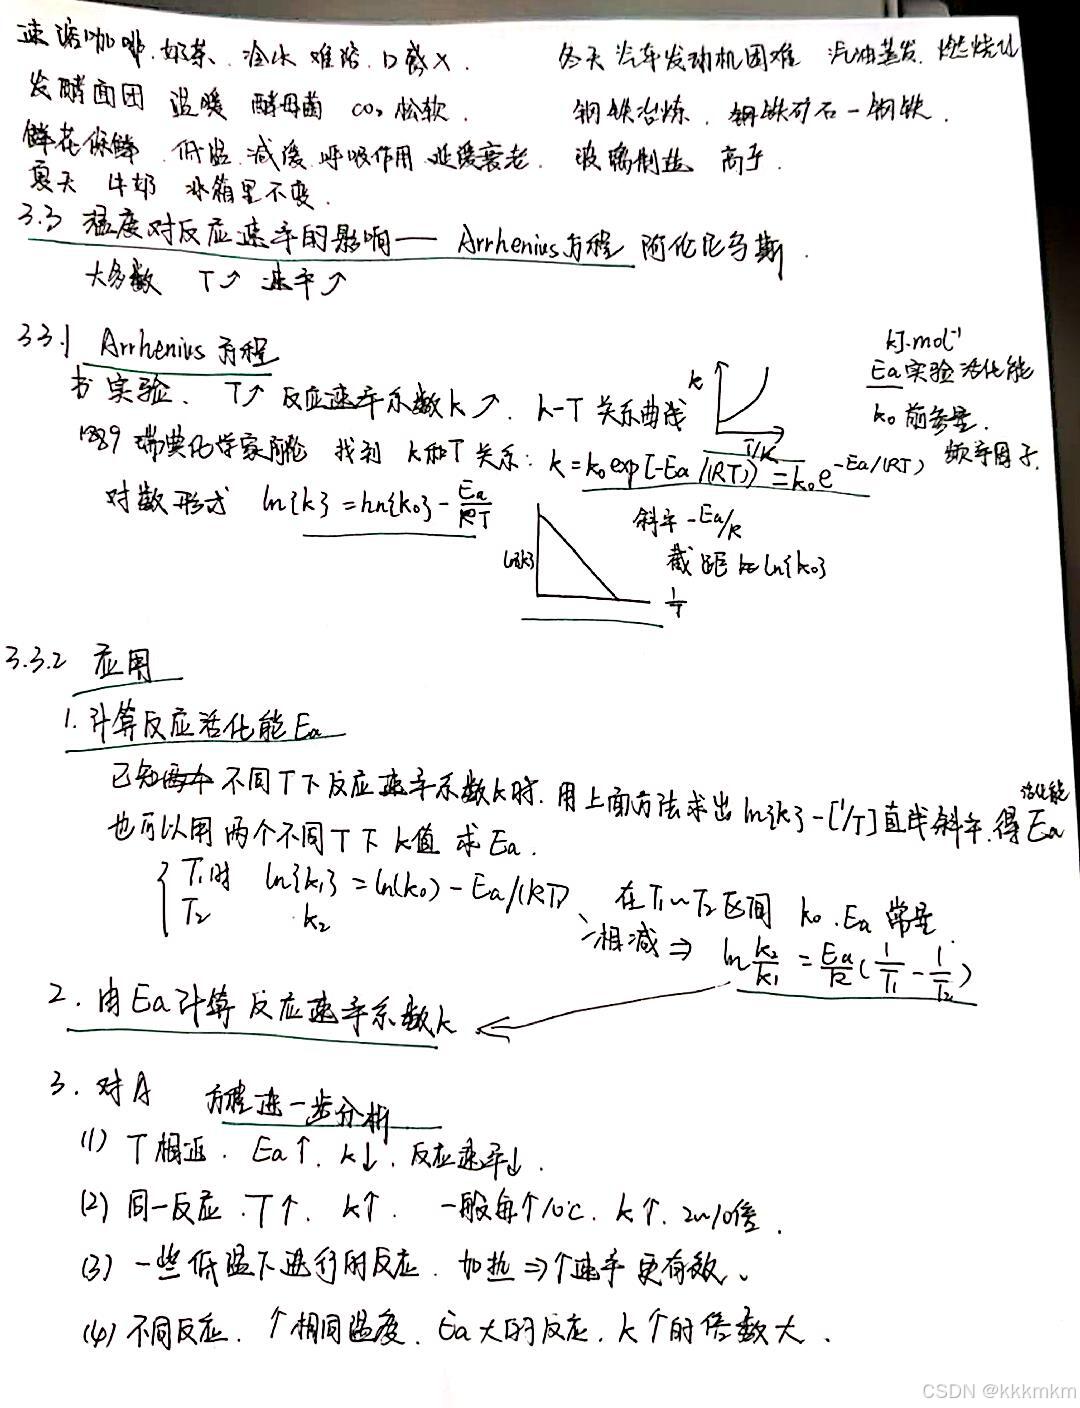 速溶咖啡、奶茶、冷水难溶、口感×.
冬天汽车发动机困难 汽油蒸发、燃烧
发酵面团 温暖 酵母菌 CO₂松软.
钢铁冶炼、钢铁矿石-钢铁.
鲜花保鲜、低温、减缓呼吸作用 延缓衰老.
玻璃制造 高子.
夏天 牛奶 冰箱里不变.
3.3 温度对反应速率的影响—— Arrhenius方程 阿伦尼乌斯.
大多数 T↗ 速率↗
3.3.1 Arrhenius方程
kJ·mol⁻¹
Ea实验活化能
k₀前参量.
频率因子.
实验、T↗反应速率系数k↗. k-T关系曲线
k
T/K
1889瑞典化学家阿伦 找到 k和T关系: k=k₀exp[-Ea/(RT)]=k₀e^(-Ea/(RT))
对数形式 ln{k}=ln{k₀}-Ea/RT
ln{k}
1/T
斜率-Ea/R
截距 k=ln{k₀}
3.3.2 应用
1.计算反应活化能Ea
已知两个不同T下反应速率系数k时.用上面方法求出ln{k}-[1/T]直线斜率.得Ea
活化能
也可以用两个不同T下k值 求Ea.
T₁时 ln{k₁}=ln(k₀)-Ea/(RT)
T₂ k₂
相减⇒
在T₁~T₂区间 k₀.Ea常量.
ln k₂/k₁=Ea/R(1/T₁-1/T₂)
2.由Ea计算反应速率系数k
3.对A 方程进一步分析
(1) T相近、Ea↑、k↓、反应速率↓.
(2)同一反应、T↑、k↑. 一般每↑10℃、k↑、2~10倍.
(3)一些低温下进行的反应、加热⇒↑速率更有效、
(4)不同反应、↑相同温度、Ea大的反应、k↑的倍数大、
CSDN @kkkmkm